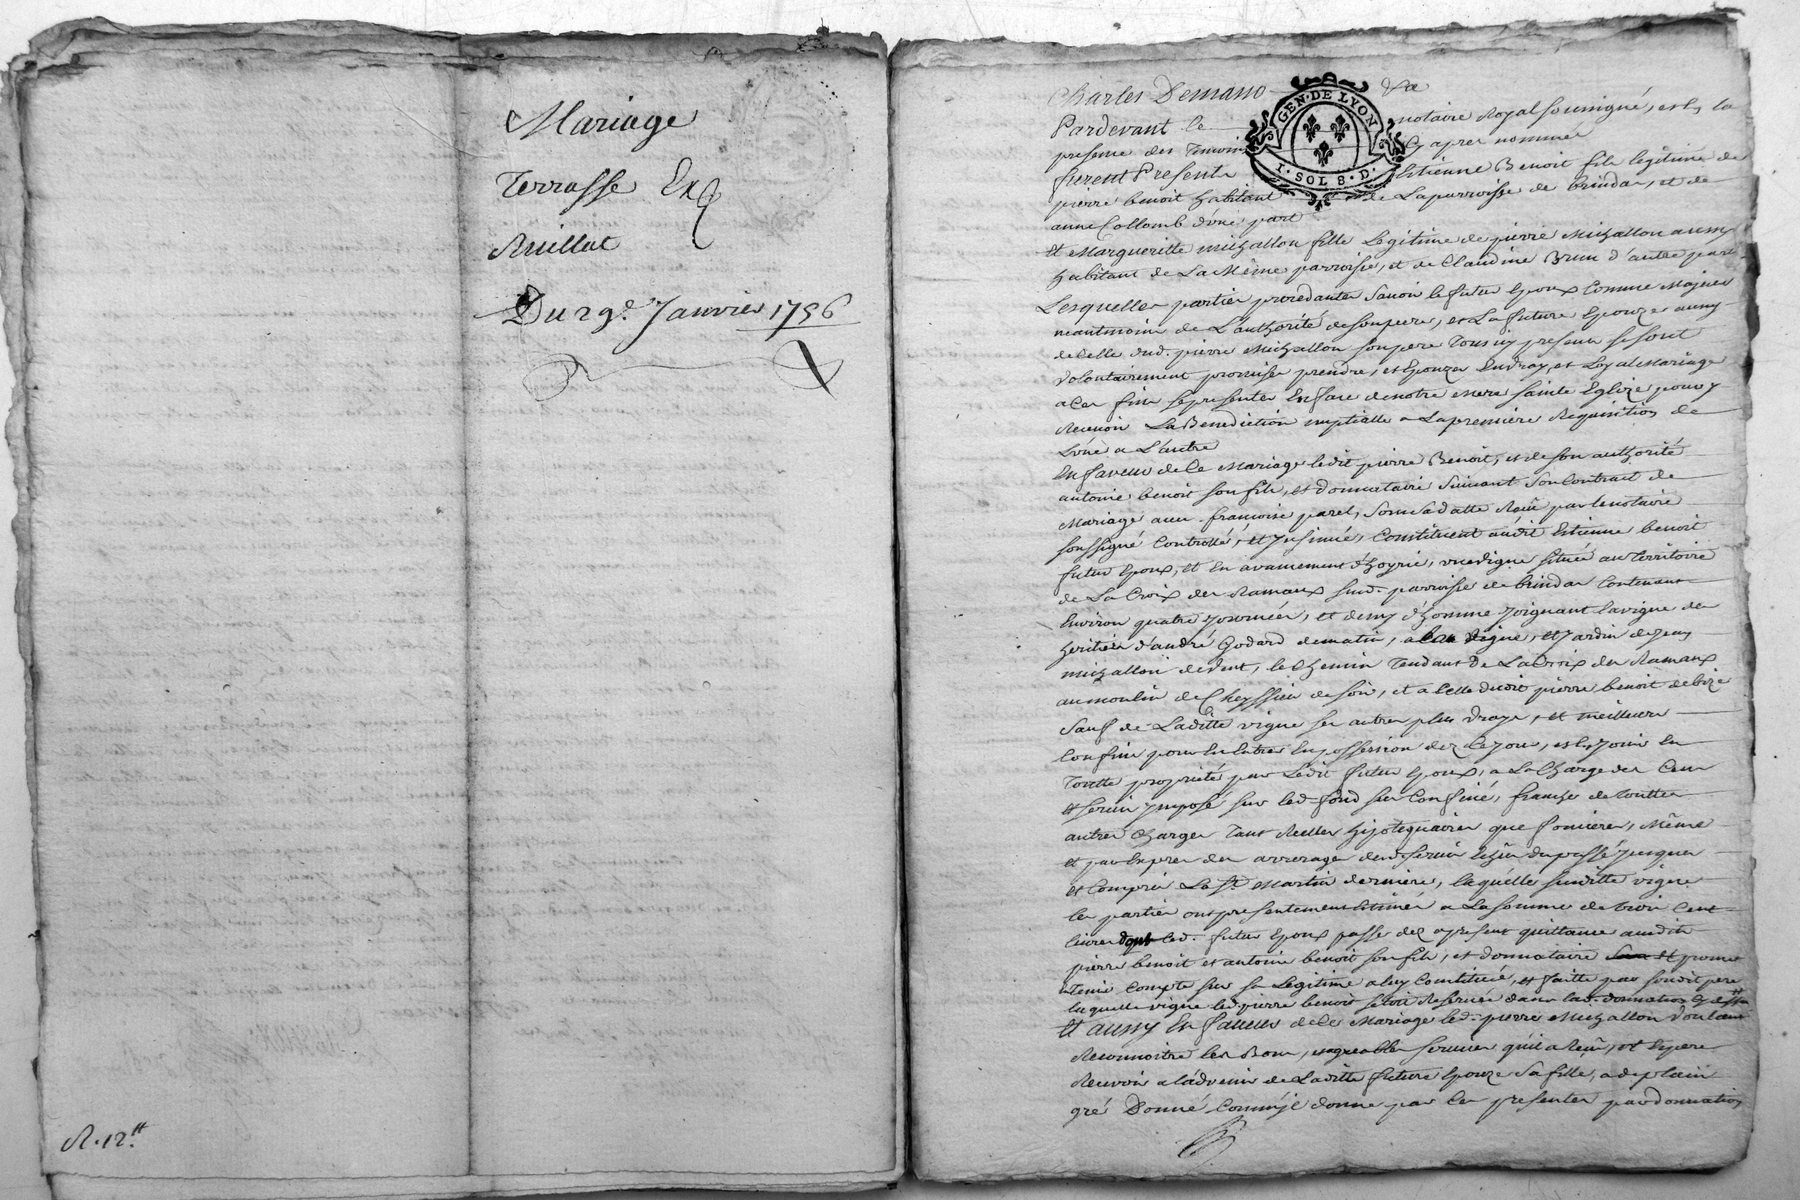 Mariage
Terrasse Ex
Ruillat
Du 29e. Janvier 1756
R. 12tt
Charles Demano &a
GEN. DE LYON
1. SOL 8. D.
Pardevant le notaire Royal soussigné, et en la
presence des Temoins Cy apres nommés
furent Presents Estienne Benoit fils legitime de
pierre benoit habitant de La parroisse de brindas, et de
anne Collomb d'une part
Et Margueritte michallon fille Legitime de pierre Michallon aussy
habitant de La Même parroisse, et de Claudine Brun d'autre part
Lesquelles parties procedantes Savoir le futur Epoux Comme Majeur
neantmoins de L'authorité de son pere, et La future Epouze aussy
de Celle dud. pierre Michallon son pere Tous icy presents se sont
volontairement promises prendre, et Epouzer En vray, et Loyal Mariage
a Ces fins se presenter En face de notre mere sainte Eglize pour y
Recevoir La Benediction nuptialle a La premiere Requisition de
L'une a L'autre
En faveur de Ce Mariage ledit pierre Benoit, et de son authorité
antoine benoit son fils, et donnataire Suivant Son Contract de
Mariage avec françoise parel, sous sa datte Reçu par le notaire
soussigné Controllé, et Insinué, Constituent audit Estienne benoit
futur Epoux, et En avancement d'hoyrie, une vigne située au Territoire
de La Croix des Rameaux sud. parroisse de brindas Contenant
Environ quatre journées, et demy d'homme joignant la vigne des
heritiers d'andré Godard de matin, a la vigne, et jardin de jean
michallon de vent, le Chemin Tendant de La Croix des Rameaux
au moulin de Cheyssieu de soir, et a Celle dudit pierre benoit de bize
Sauf de Laditte vigne ses autres plus vrays, et meilleurs
Confins pour En Entrer En possession dez Ce jour, et En jouir En
Toutte proprieté par Ledit futur Epoux, a La Charge des Cens
et servis imposé sur led. fond sus Confiné, franche de touttes
autres Charges Tant Reelles hipotequaires que foncieres, Même
et par Exprez des arrerages desd. servis Echûs du passé jusques
et Compris La St. Martin derniere, laquelle susditte vigne
les parties ont presentement Estimée a La somme de trois Cent
livres dont led. futur Epoux passe dez a present quittance audits
pierre benoit et antoine benoit son fils, et donnataire promet
tenir Compte sur sa Legitime a luy Constituée, et faitte par sondit pere
laquelle vigne led. pierre benoit s'étoit Reservée dans lad. donnation
Et aussy En faveur de Ce Mariage led. pierre Michallon voulant
Reconnoitre les Bons, et agreables services qu'il a Reçu, et Espere
Recevoir a l'advenir de Laditte future Epouze Sa fille, a de plein
gré Donné, Comme il donne par Ces presentes par donnation